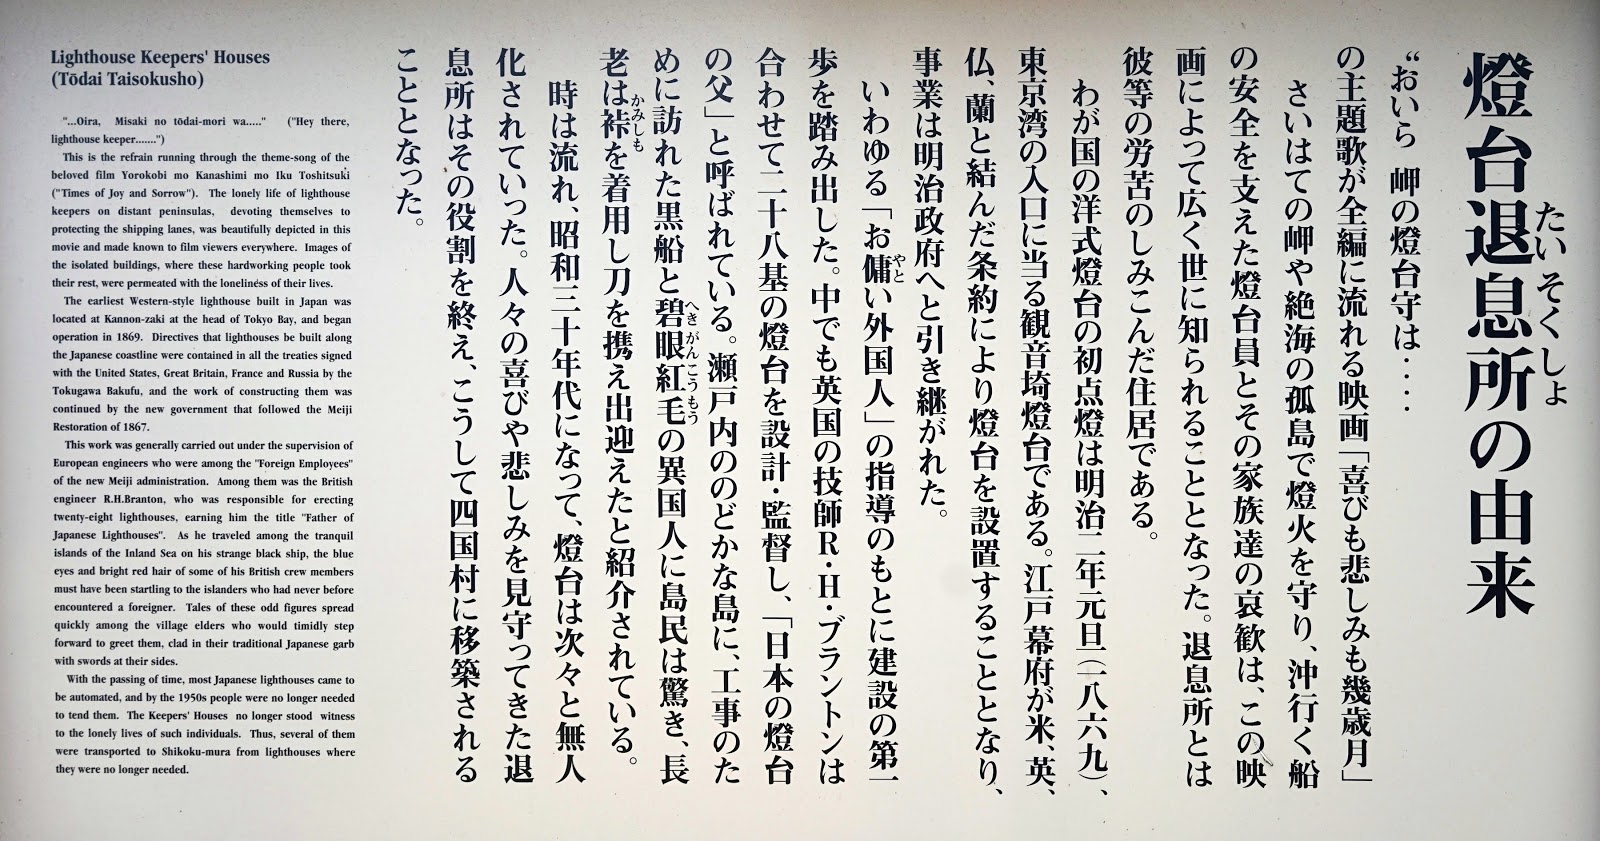 燈台退息所の由来
たいそくしょ
“おいら 岬の燈台守は‥‥
の主題歌が全編に流れる映画「喜びも悲しみも幾歳月」
さいはての岬や絶海の孤島で燈火を守り、沖行く船
の安全を支えた燈台員とその家族達の哀歓は、この映
画によって広く世に知られることとなった。退息所とは
彼等の労苦のしみこんだ住居である。
わが国の洋式燈台の初点燈は明治二年元旦(一八六九)、
東京湾の入口に当る観音埼燈台である。江戸幕府が米、英、
仏、蘭と結んだ条約により燈台を設置することとなり、
事業は明治政府へと引き継がれた。
いわゆる「お傭い外国人」の指導のもとに建設の第一
やと
歩を踏み出した。中でも英国の技師R・H・ブラントンは
合わせて二十八基の燈台を設計・監督し、「日本の燈台
の父」と呼ばれている。瀬戸内ののどかな島に、工事のた
めに訪れた黒船と碧眼紅毛の異国人に島民は驚き、長
へきがんこうもう
老は裃を着用し刀を携え出迎えたと紹介されている。
かみしも
時は流れ、昭和三十年代になって、燈台は次々と無人
化されていった。人々の喜びや悲しみを見守ってきた退
息所はその役割を終え、こうして四国村に移築される
こととなった。
Lighthouse Keepers' Houses
(Tōdai Taisokusho)
"...Oira, Misaki no tōdai-mori wa....." ("Hey there,
lighthouse keeper.......")
This is the refrain running through the theme-song of the
beloved film Yorokobi mo Kanashimi mo Iku Toshitsuki
("Times of Joy and Sorrow"). The lonely life of lighthouse
keepers on distant peninsulas, devoting themselves to
protecting the shipping lanes, was beautifully depicted in this
movie and made known to film viewers everywhere. Images of
the isolated buildings, where these hardworking people took
their rest, were permeated with the loneliness of their lives.
The earliest Western-style lighthouse built in Japan was
located at Kannon-zaki at the head of Tokyo Bay, and began
operation in 1869. Directives that lighthouses be built along
the Japanese coastline were contained in all the treaties signed
with the United States, Great Britain, France and Russia by the
Tokugawa Bakufu, and the work of constructing them was
continued by the new government that followed the Meiji
Restoration of 1867.
This work was generally carried out under the supervision of
European engineers who were among the "Foreign Employees"
of the new Meiji administration. Among them was the British
engineer R.H.Branton, who was responsible for erecting
twenty-eight lighthouses, earning him the title "Father of
Japanese Lighthouses". As he traveled among the tranquil
islands of the Inland Sea on his strange black ship, the blue
eyes and bright red hair of some of his British crew members
must have been startling to the islanders who had never before
encountered a foreigner. Tales of these odd figures spread
quickly among the village elders who would timidly step
forward to greet them, clad in their traditional Japanese garb
with swords at their sides.
With the passing of time, most Japanese lighthouses came to
be automated, and by the 1950s people were no longer needed
to tend them. The Keepers' Houses no longer stood witness
to the lonely lives of such individuals. Thus, several of them
were transported to Shikoku-mura from lighthouses where
they were no longer needed.